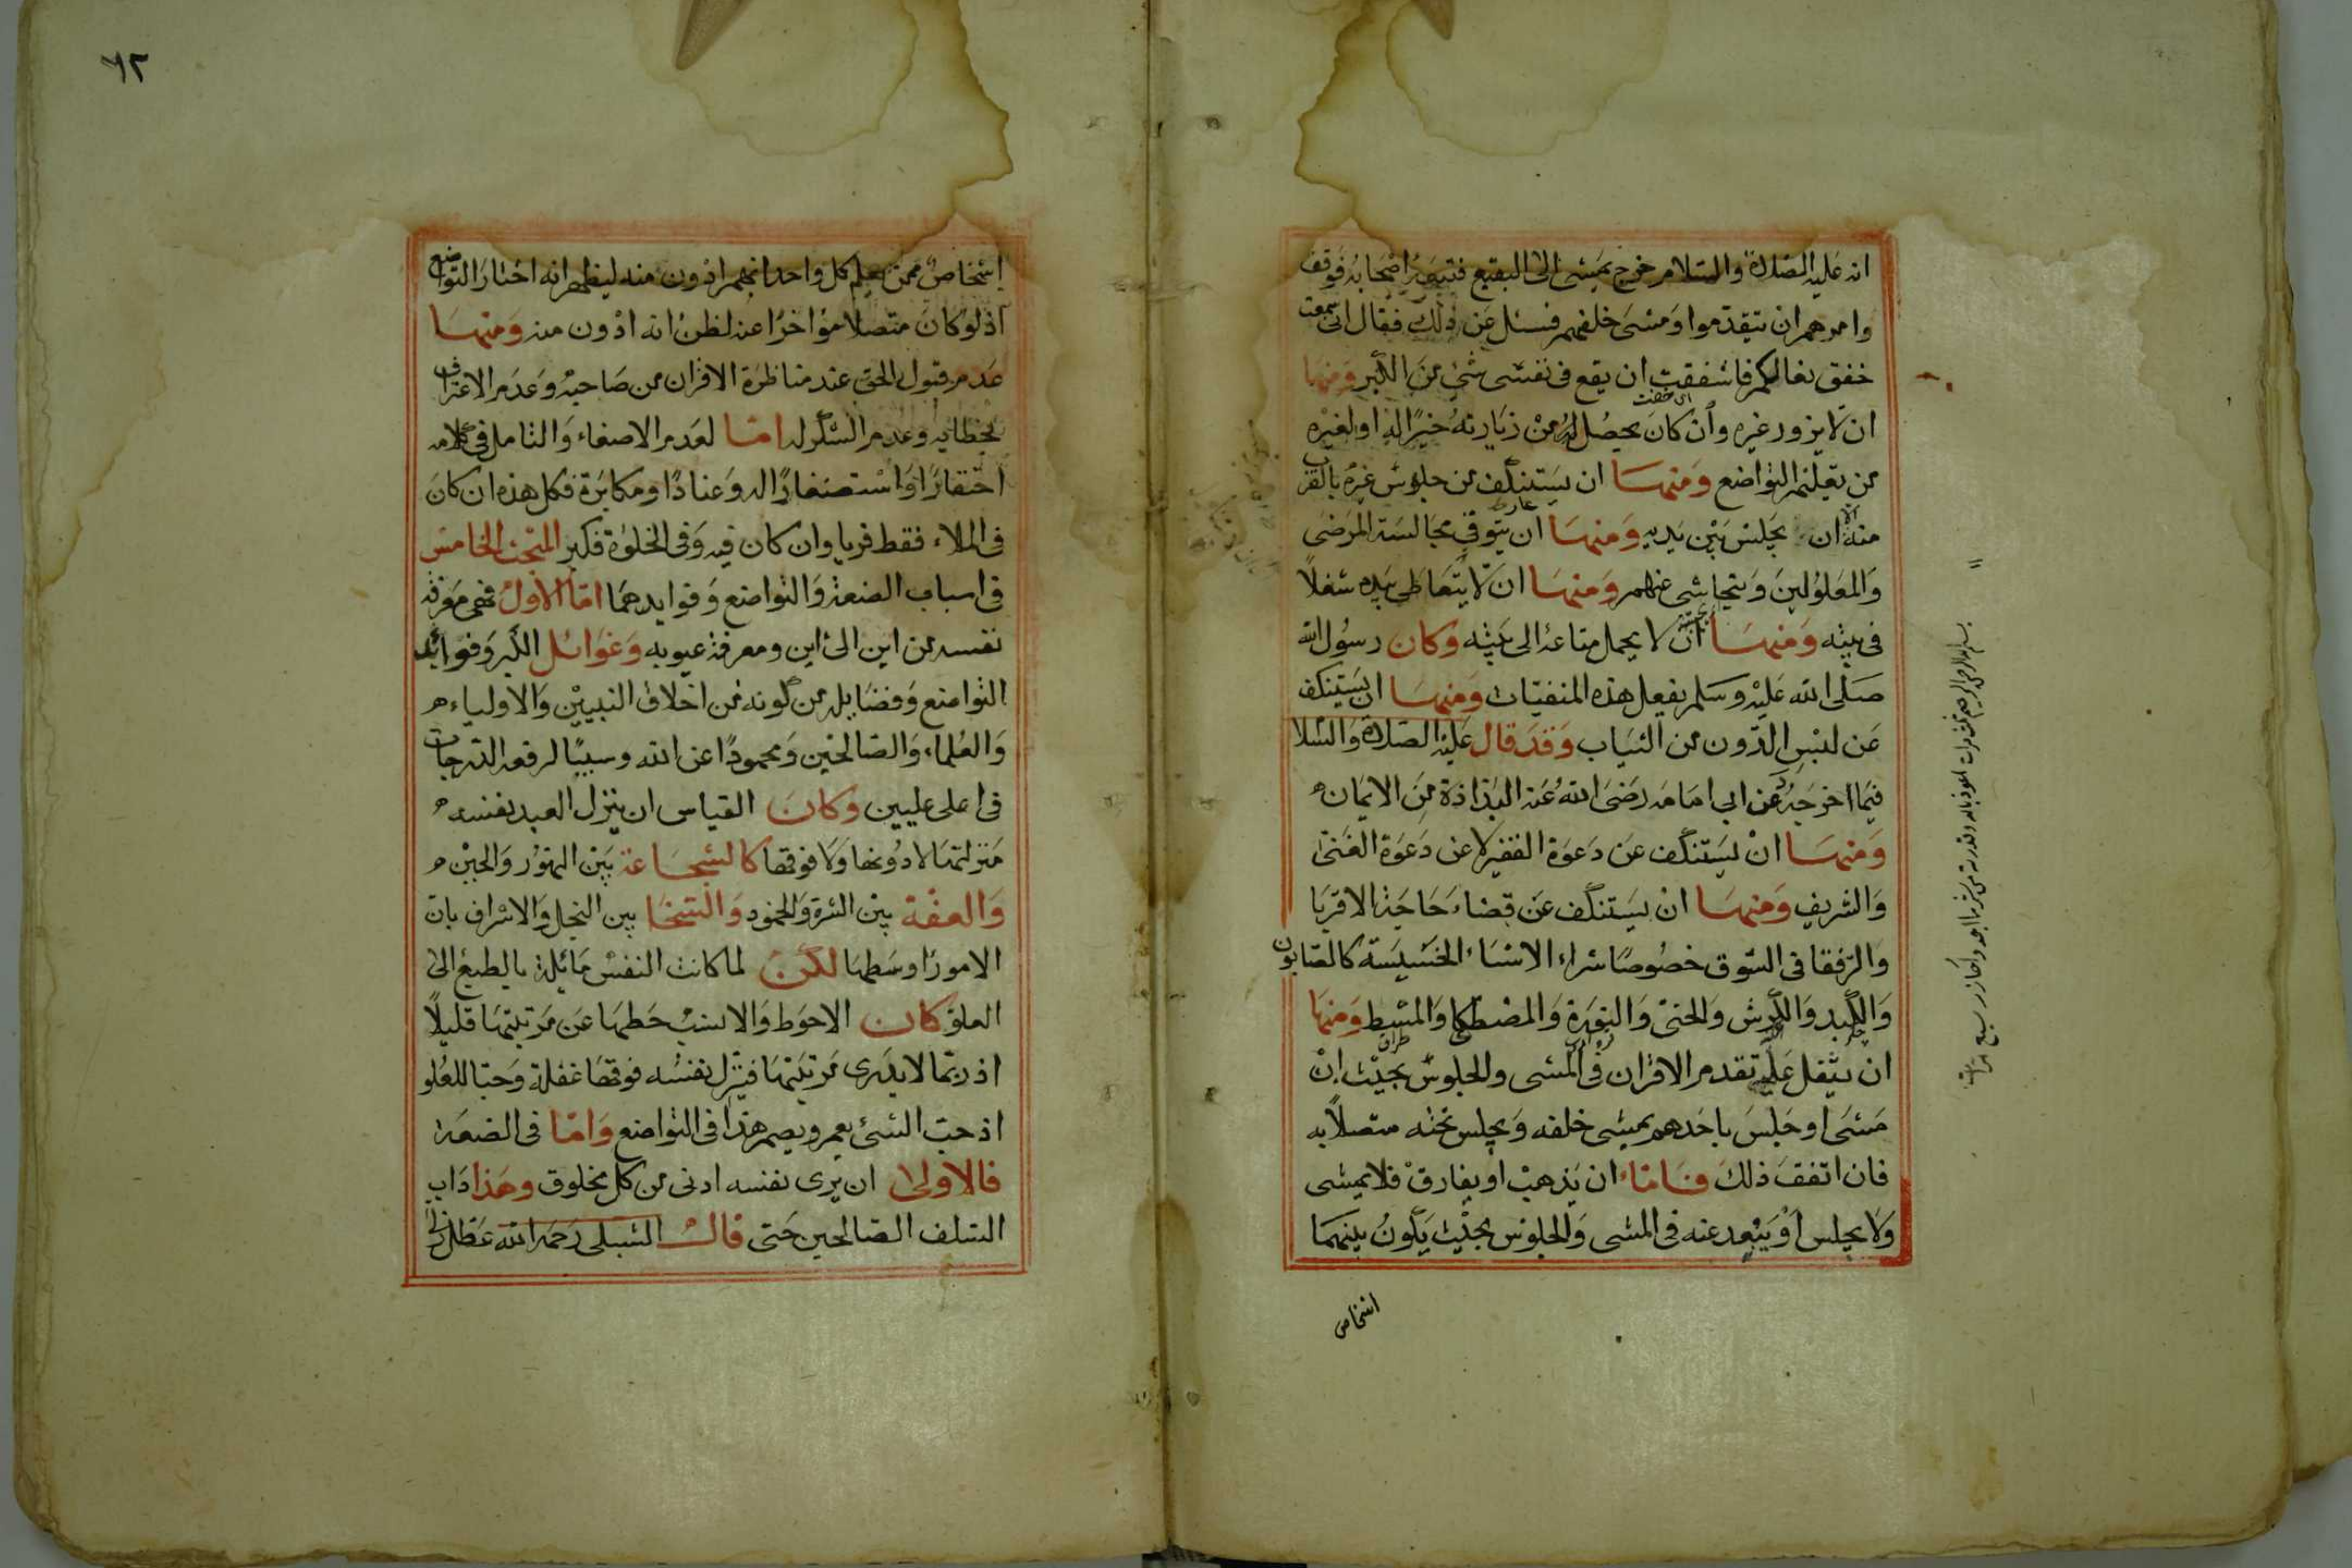 انه عليه الصلاة والسلام خرج يمشى الى البقيع فتبعه اصحابه فوقف
وامرهم ان يتقدموا ومشى خلفهم فسئل عن ذلك فقال انى سمعت
خفق نعالكم فاشفقت ان يقع فى نفسى شئ من الكبر ومنها
اى خفت
ان لا يزور غيره وان كان يحصل له من زيارته خير له او لغيره
من تعليم التواضع ومنها ان يستنكف من جلوس غيره بالقرب
منه الا ان يجلس بين يديه ومنها ان يتوقى مجالسة المرضى
والمعلولين ويتحاشى عنهم ومنها ان لا يتعاطى بيده شغلا
فى بيته ومنها ان لا يحمل متاعه الى بيته وكان رسول الله
صلى الله عليه وسلم يفعل هذه المنفيات ومنها ان يستنكف
عن لبس الدون من الثياب وقد قال عليه الصلاة والسلا
فيما اخرجه د عن ابى امامه رضى الله عنه البذاذة من الايمان
ومنها ان يستنكف عن دعوة الفقير لا عن دعوة الغنى
والشريف ومنها ان يستنكف عن قضاء حاجة الاقربا
والرفقا فى السوق خصوصا شراء الاشياء الخسيسة كالصابون
والكبد والكرش والحنى والنورة والمصطكا والمشط ومنها
ان يثقل عليه تقدم الاقران فى المشى والجلوس بحيث ان
مشى او جلس باحدهم يمشى خلفه ويجلس تحته متصلا به
فان اتفق ذلك فاما ان يذهب او يفارق فلا يمشى
ولا يجلس او يبعد عنه فى المشى والجلوس بحيث يكون بينهما
اشخاص
٦٢
اشخاص ممن يعلم كل واحد انهم ادون منه ليظهر انه اختار التواضع
اذ لو كان متصلا مؤاخرا عنه لظن انه ادون منه ومنها
عدم قبول الحق عند مناظرة الاقران من صاحبه وعدم الاعتراف
بخطايه وعدم الشكر له اما لعدم الاصغاء والتامل فى كلامه
احتقارا واستصغارا له وعنادا ومكابرة فكل هذه ان كان
فى الملاء فقط فريا وان كان فيه وفى الخلوة فكبر المبحث الخامس
فى اسباب الضعة والتواضع وفوايدهما اما الاول فهى معرفة
نفسه من اين الى اين ومعرفة عيوبه وغوائل الكبر وفوائد
التواضع وفضايله من كونه من اخلاق النبيين والاولياء
والعلماء والصالحين ومحمودا عن الله وسببا لرفعه الدرجات
فى اعلى عليين وكان القياس ان ينزل العبد نفسه
منزلتها لا دونها ولا فوقها كالشجاعة بين التهور والجبن
والعفة بين الشره والجمود والسخا بين البخل والاسراف بان
الامور اوسطها لكن لما كانت النفس مائلة بالطبع الى
العلو كان الاحوط والانسب حطها عن مرتبتها قليلا
اذ ربما لا يدرى مرتبتها فينزل نفسه فوقها غفلة وحبا للعلو
اذ حب الشئ يعمى ويصم هذا فى التواضع واما فى الضعة
فالاولى ان يرى نفسه ادنى من كل مخلوق وهذا داب
السلف الصالحين حتى قال الشبلى رحمه الله عطل ذلى